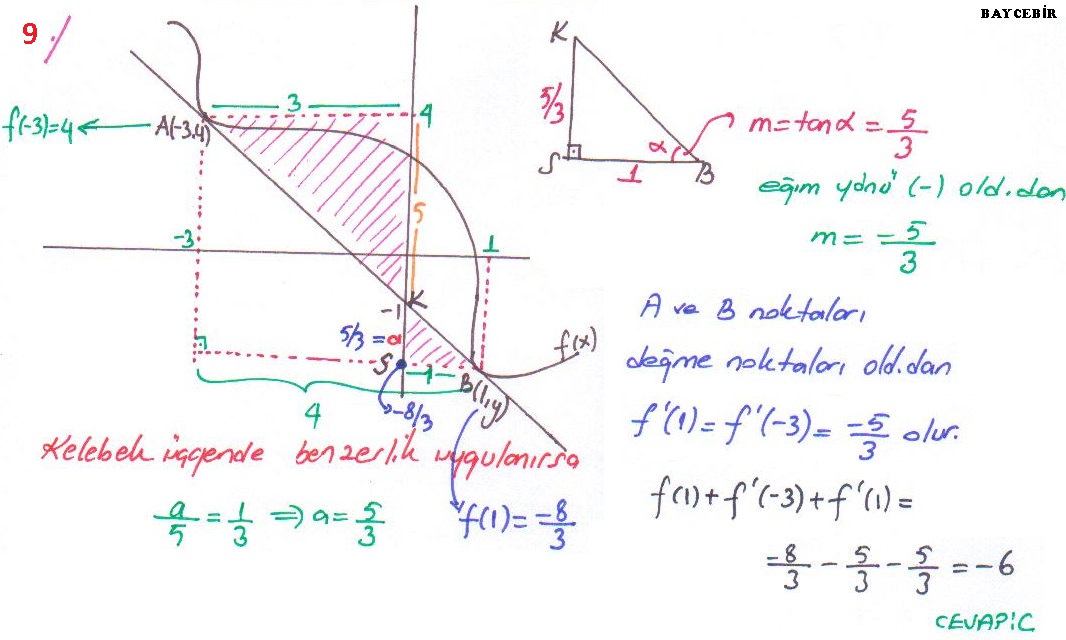 BAYCEBİR
9./
K
5/3
S
1
α
B
m=tanα = 5/3
eğim yönü (-) old.dan
m= -5/3
3
4
f(-3)=4
A(-3,4)
5
-3
1
K
-1
5/3 = a
S
1
B(1,y)
f(x)
-8/3
4
A ve B noktaları
değme noktaları old.dan
f'(1) = f'(-3) = -5/3 olur.
Kelebek üçgende benzerlik uygulanırsa
a/5 = 1/3 => a = 5/3
f(1) = -8/3
f(1) + f'(-3) + f'(1) =
-8/3 - 5/3 - 5/3 = -6
CEVAP:C